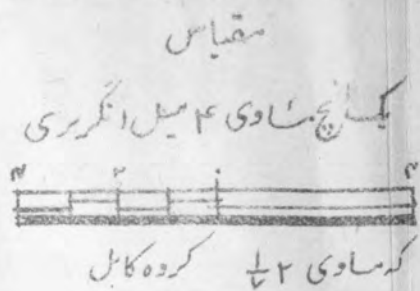 مقیاس
یک انچ مساوی ۴ میل انگریزی
۴ ۲ ۰ ۴
که مساوی ۲ ۱/۲ کروه کابل